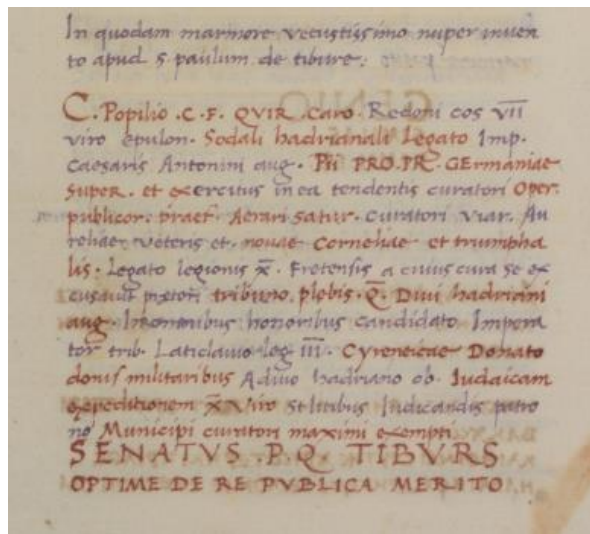 In quodam marmore vetustissimo nuper inven
to apud S paulum de tibure:
C. Popilio . C . F . QVIR . Caro . Redoni cos VII
viro epulon . Sodali hadrianali Legato Imp.
Caesaris Antonini aug . Pii PRO . PR . GErmaniae
Super . et exercitus in ea tendentis curatori Oper.
publicor . praef . Aerari Satur . Curatori viar . Au
reliae . veteris et . novae Corneliae et triumpha
lis . Legato legionis X . Fretensis a cuius cura se ex
cusavit pretori tribuno . plebis . Q . Divi hadriani
aug . In omnibus honoribus candidato Impera
tor trib . Laticlavio leg III . Cyreneicae Donato
donis militaribus A divo hadriano ob . Iudaicam
expeditionem XX viro Stlitibus Iudicandis patro
no Municipi curatori maximi exempti
SENATVS . P . Q . TIBVRS
OPTIME DE RE PVBLICA MERITO